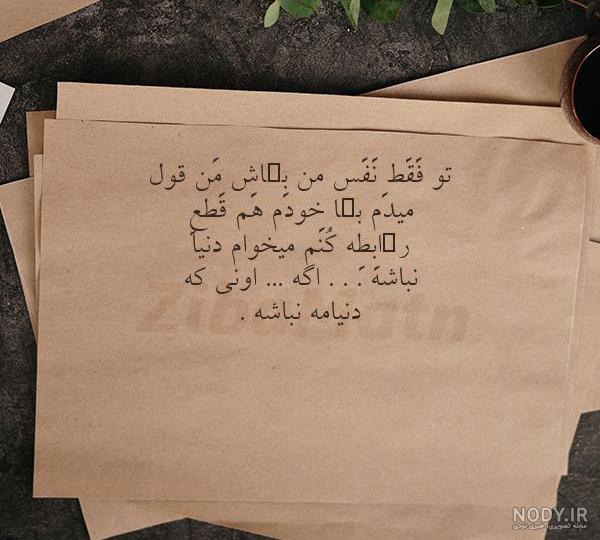 تو فَقَط نَفَس من بِ‌▯اش مَن قول
میدَم ب▯ا خودَم هَم قَطعِ
ر▯ابطه کُنَم میخوام دنیا
نباشهَ َ. . . اگه ... اونی که
دنیامه نباشه .
ZibaMatn
NODY.IR
مجله تصویری، خبری نودی